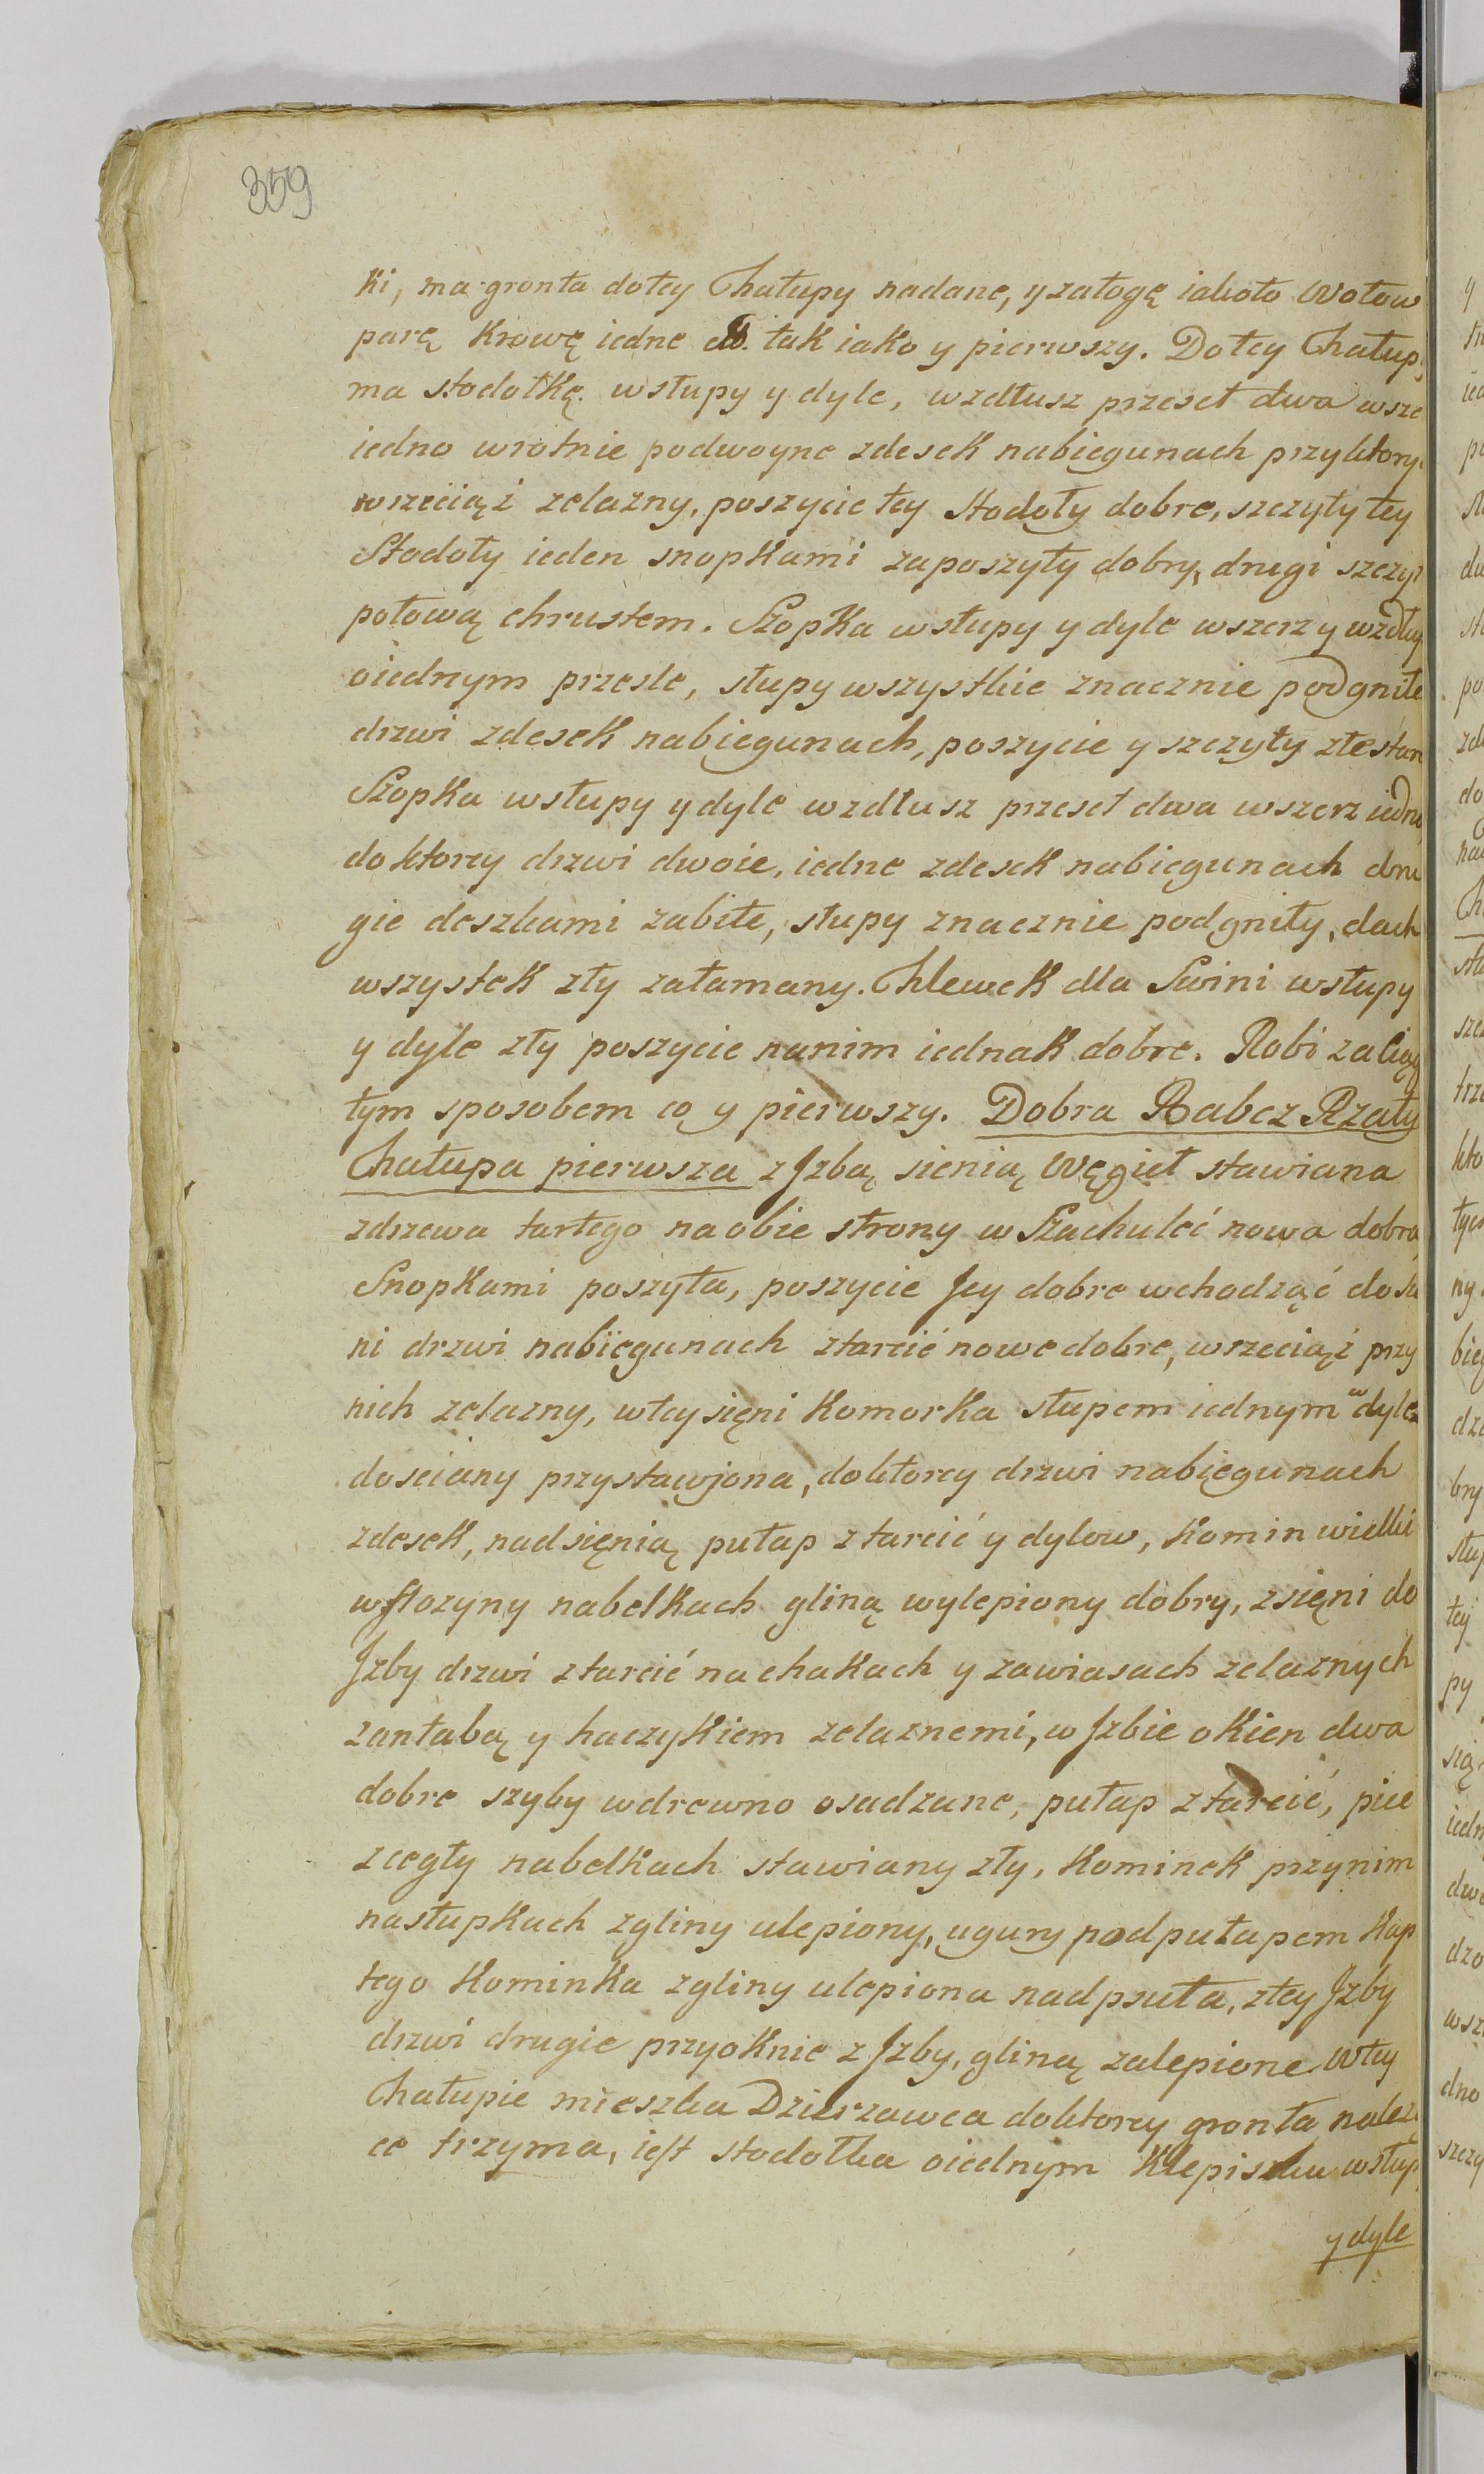 359
ki, ma gronta dotey Chałupy nadane, y załogę iakoto Wołow
parę Krowę iedne tak iako y pierwszy. Dotey Chałupy
ma stodołkę wsłupy y dyle, wzdłusz przeseł dwa wsze
iedno wrotnie podwoyne zdesek nabiegunach przyktory
wrzeciąż zelazny, poszycie tey Stodoły dobre, szczyty tey
Stodoły ieden snopkami zaposzyty dobry, drugi szczyt
połową chrustem. Szopka wsłupy y dyle wszerz y wzdłuż
oiednym przesle, słupy wszystkie znacznie podgniłe
drzwi zdesek nabiegunach, poszycie y szczyty złe stare
Szopka wsłupy y dyle wzdłusz przeseł dwa wszerz iedno
doktorey drzwi dwoie, iedne zdesek nabiegunach dru
gie deszkami zabite, słupy znacznie podgniły, dach
wszystek zły załamany. Chlewek dla Swini wsłupy
y dyle zły poszycie nanim iednak dobre. Robi zaciąg
tym sposobem co y pierwszy. Dobra Rabcz Rzaty
Chałupa pierwsza z Jzbą sienią Węgieł stawiana
zdrzewa tartego naobie strony w Szachulec nowa dobra
Snopkami poszyta, poszycie Jey dobre wchodząć dosię
ni drzwi nabiegunach ztarcić nowe dobre, wrzeciąż przy
nich zelazny, wtey sięni Komorka słupem iednym w dyle
dosciany przystawjona, doktorey drzwi nabiegunach
zdesek, nadsięnią pułap ztarcić y dylow, Komin wielki
wstozyny nabelkach gliną wylepiony dobry, zsięni do
Jzby drzwi ztarcić na chakach y zawiasach zelaznych
zantabą y haczykiem zelaznemi, w Jzbie okien dwa
dobre szyby wdrewno osadzane, pułap ztarcić, piec
zcegły nabelkach stawiany zły, Kominek przynim
nasłupkach zgliny ulepiony, ugury podpułapem Kap
tego Kominka zgliny ulepiona nadpsuta, ztey Jzby
drzwi drugie przyoknie z Jzby, gliną zalepione. Wtey
Chałupie mieszka Dzierzawca doktorey gronta należą
ce trzyma, iest stodołka oiednym Klepisku wsłupy
y dyle